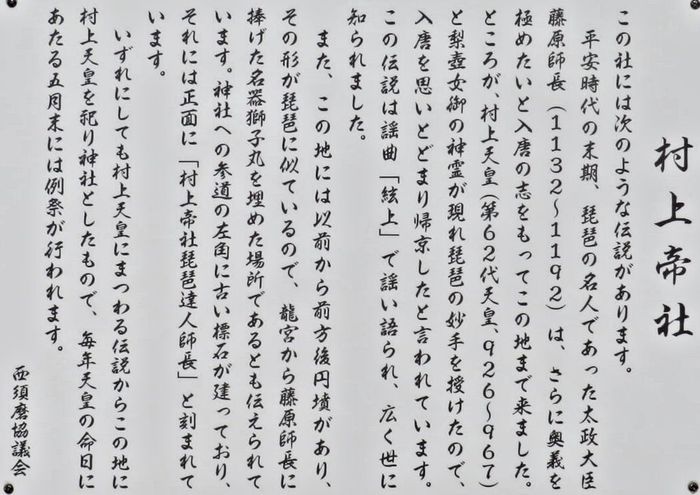 村上帝社
この社には次のような伝説があります。
平安時代の末期、琵琶の名人であった太政大臣
藤原師長（1132～1192）は、さらに奥義を
極めたいと入唐の志をもってこの地まで来ました。
ところが、村上天皇（第62代天皇、926～967）
と梨壺女御の神霊が現れ琵琶の妙手を授けたので、
入唐を思いとどまり帰京したと言われています。
この伝説は謡曲「絃上」で謡い語られ、広く世に
知られました。
また、この地には以前から前方後円墳があり、
その形が琵琶に似ているので、龍宮から藤原師長に
捧げた名器獅子丸を埋めた場所であるとも伝えられて
います。神社への参道の左角に古い標石が建っており、
それには正面に「村上帝社琵琶達人師長」と刻まれて
います。
いずれにしても村上天皇にまつわる伝説からこの地に
村上天皇を祀り神社としたもので、毎年天皇の命日に
あたる五月末には例祭が行われます。
西須磨協議会